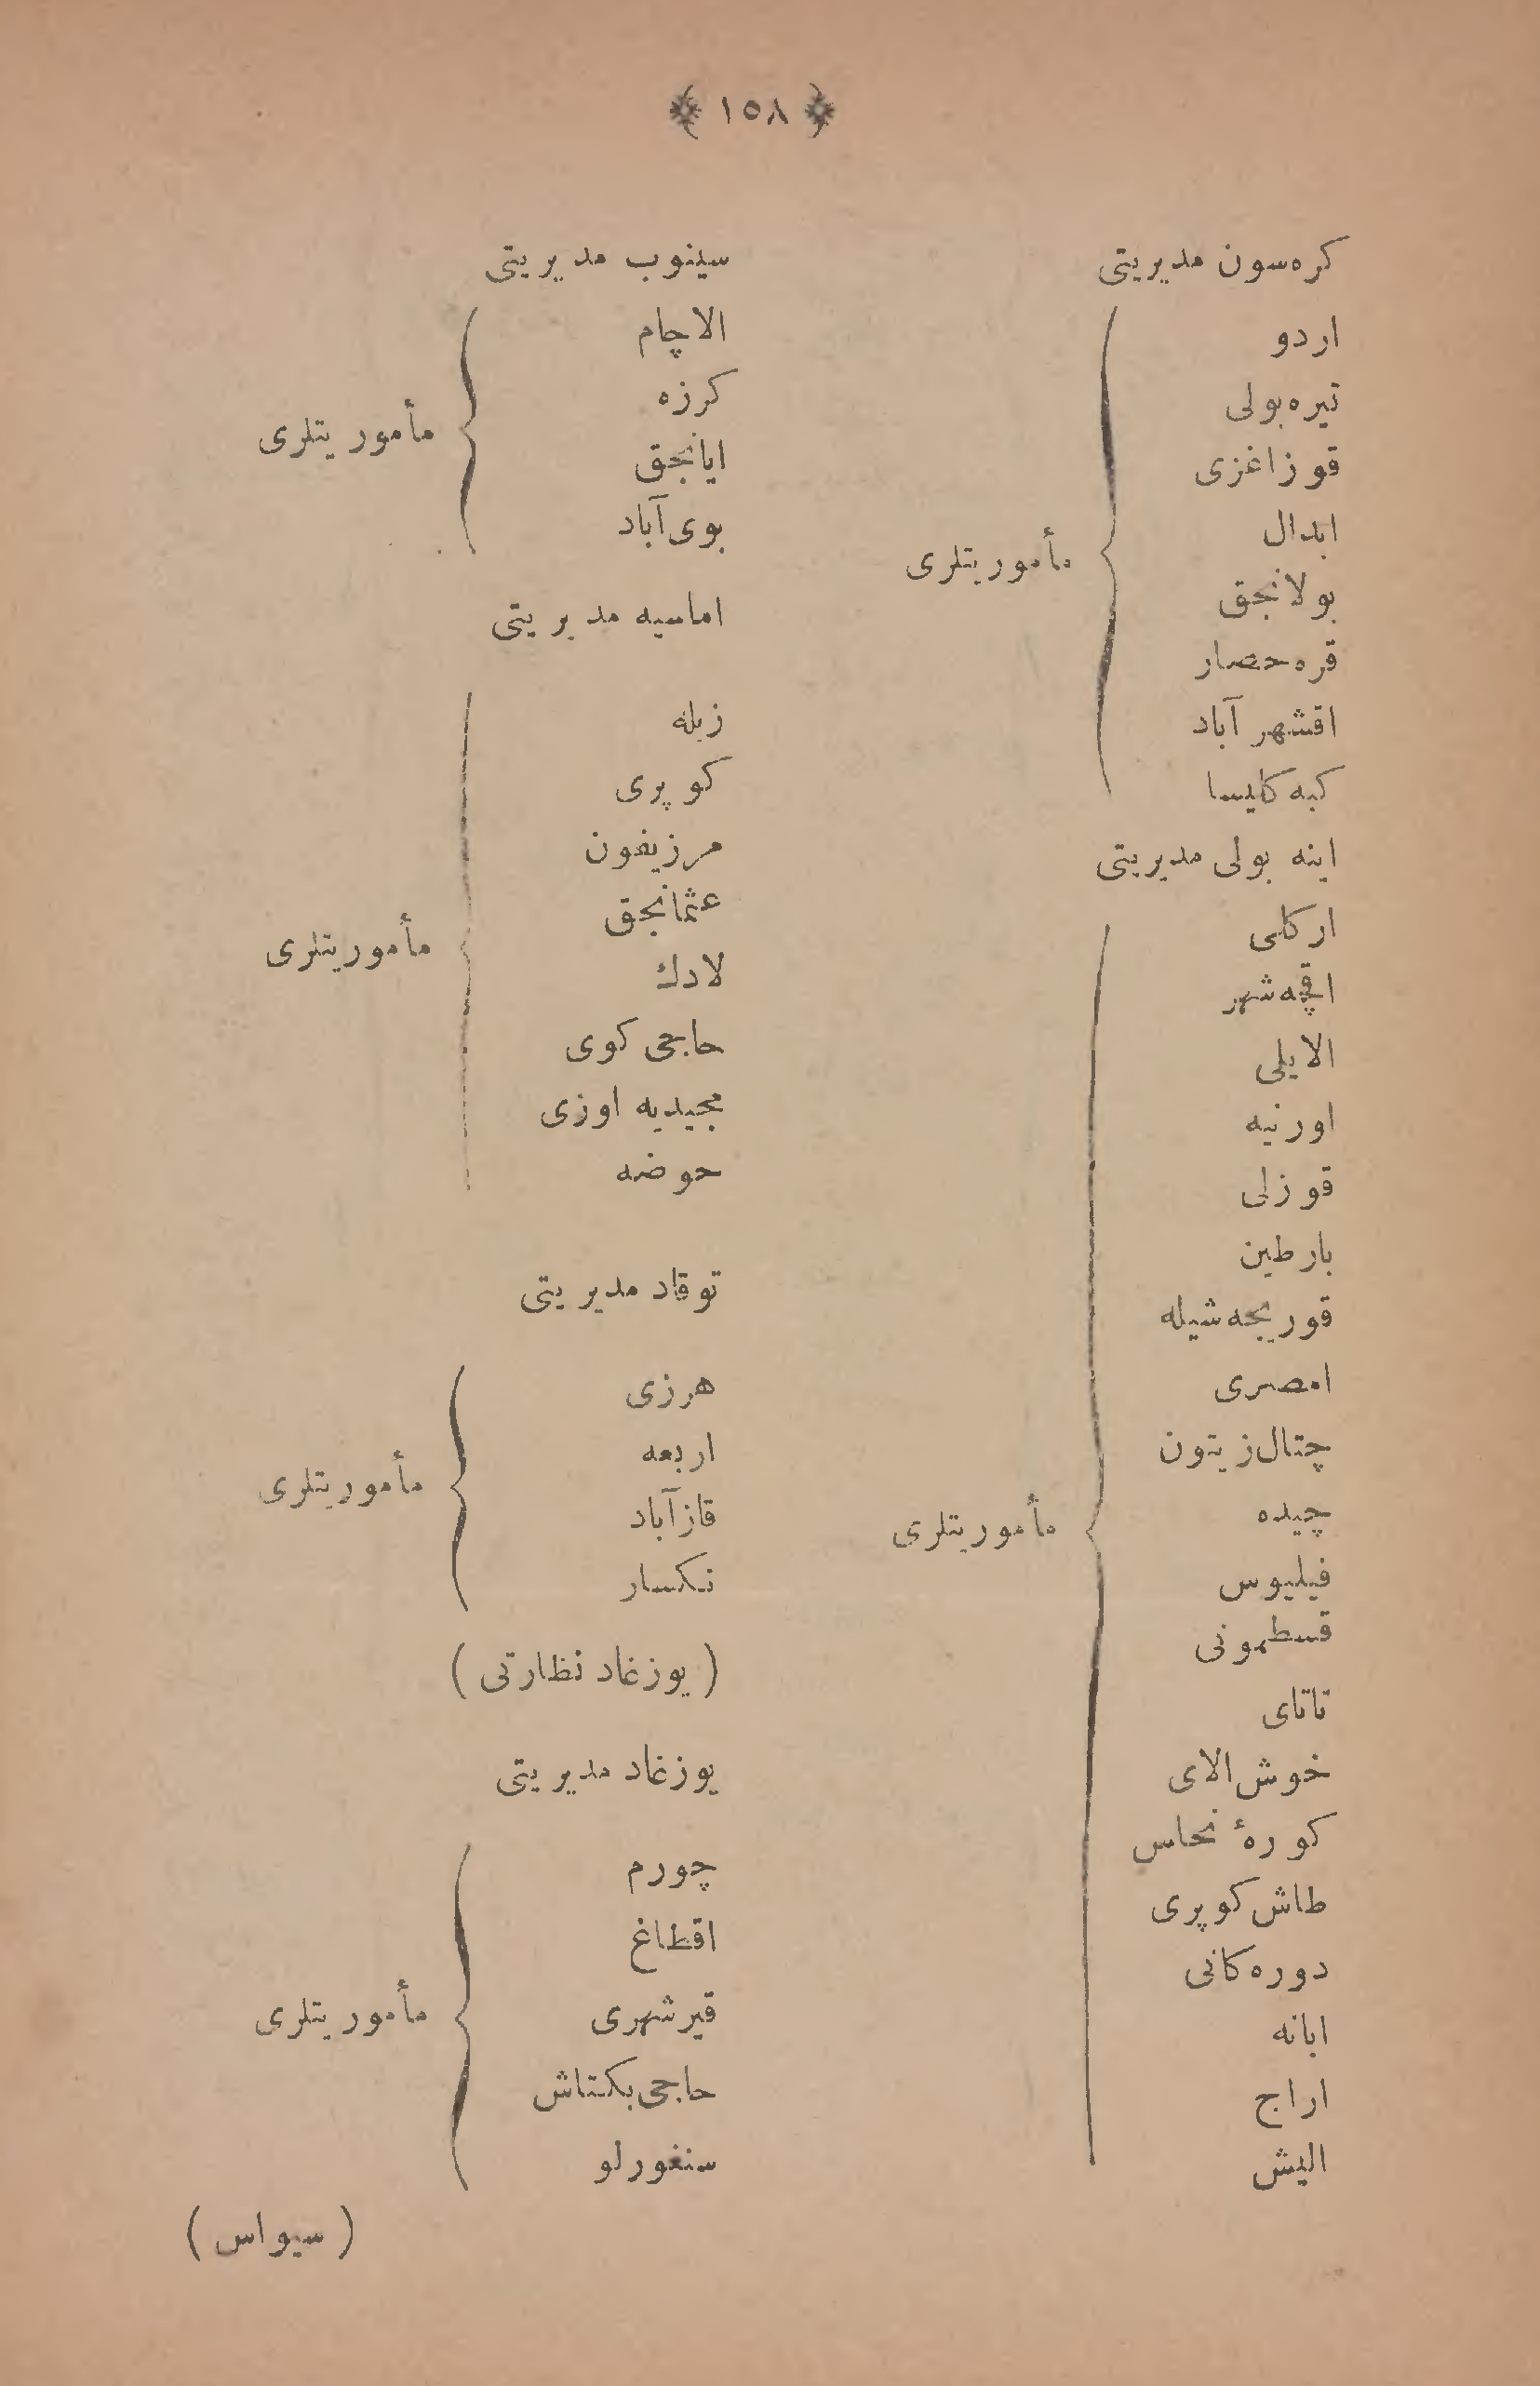 ﴿ ١٥٨ ﴾
كره‌سون مديريتى
اردو
تيره‌بولى
قوزاغزى
ابدال
بولانجق
قره حصار
اقشهر آباد
كبه كليسا
مأموريتلرى
اينه بولى مديريتى
اركلى
اقچه‌شهر
الايلى
اورنيه
قوزلى
بارطين
قوريجه شيله
امصرى
چتال‌زيتون
چيده
فيليوس
قسطمونى
تاتاى
خوش‌الاى
كورهٔ نحاس
طاش‌كوپرى
دوره‌كانى
ابانه
اراج
اليش
مأموريتلرى
سينوب مديريتى
الاچام
كرزه
ايانجق
بوى‌آباد
مأموريتلرى
اماسيه مديريتى
زيله
كوپرى
مرزيفون
عثمانجق
لادك
حاجى كوى
مجيديه اوزى
حوضه
مأموريتلرى
توقاد مديريتى
هرزى
اربعه
قازآباد
نكسار
مأموريتلرى
( يوزغاد نظارتى )
يوزغاد مديريتى
چورم
اقطاغ
قيرشهرى
حاجى‌بكتاش
سنغورلو
مأموريتلرى
( سيواس )